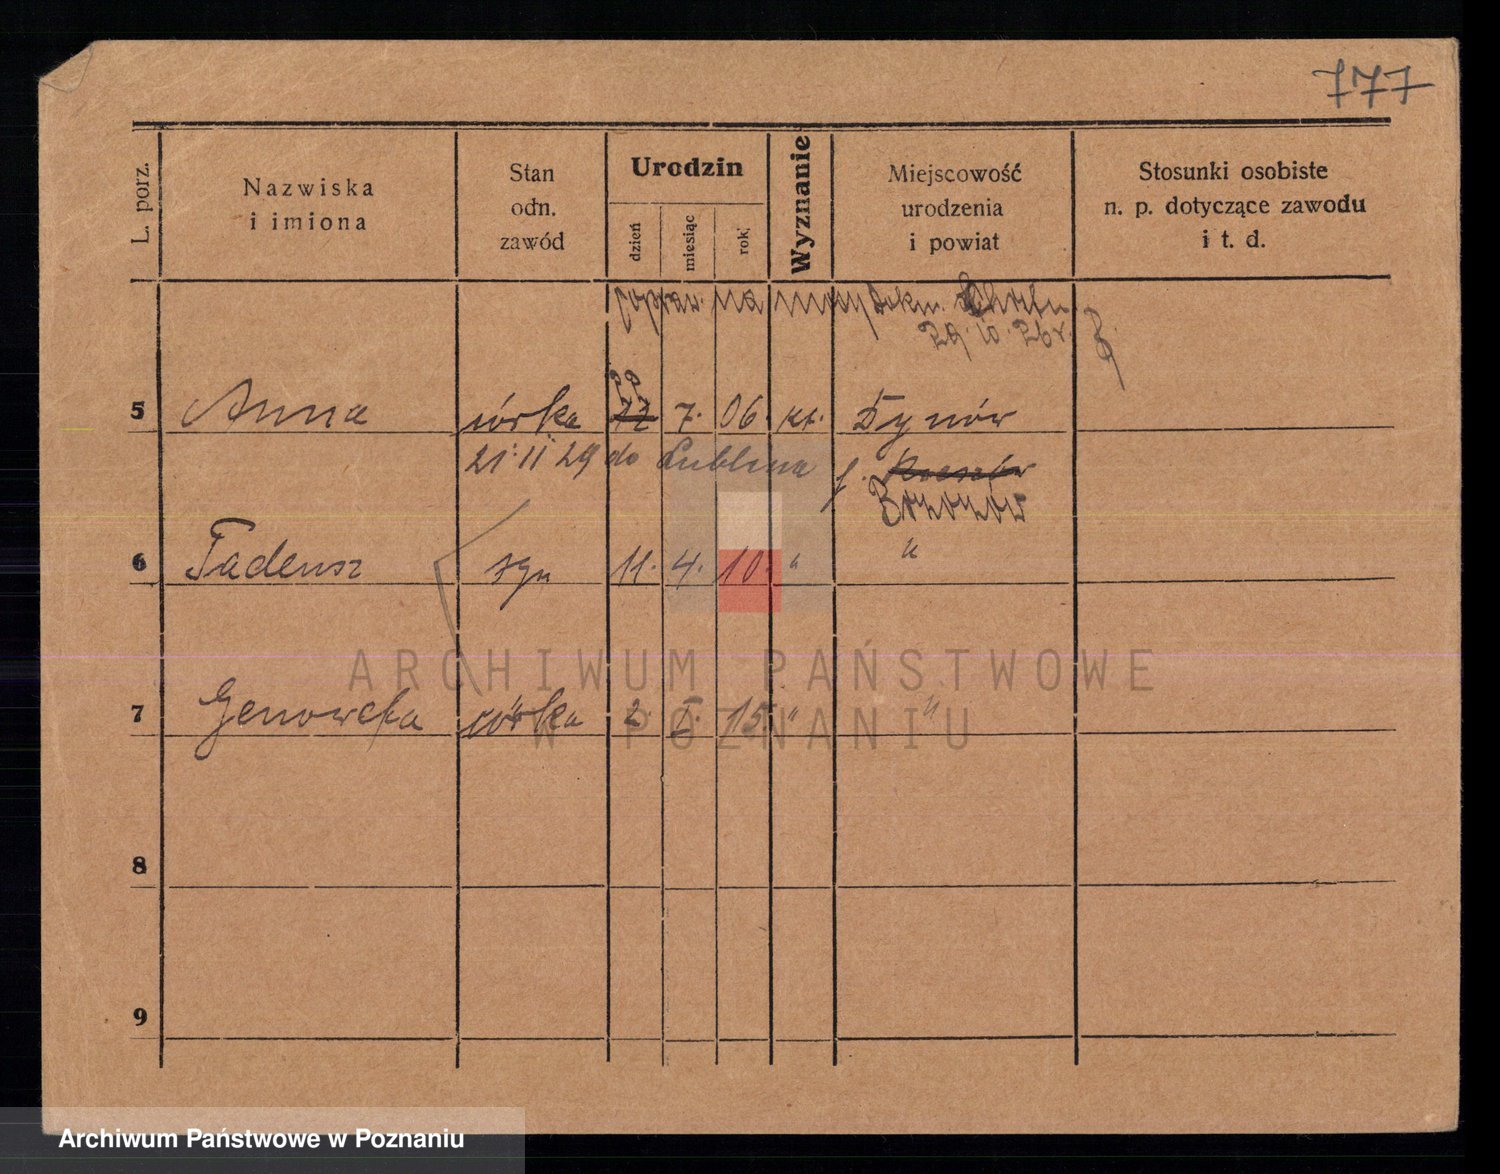 777
L. porz.
Nazwiska
i imiona
Stan
odn.
zawód
Urodzin
dzień
miesiąc
rok
Wyznanie
Miejscowość
urodzenia
i powiat
Stosunki osobiste
n. p. dotyczące zawodu
i t. d.
na dokum.
29.10.26 r.
22
5 Anna córka 7. 06. kt. Dynów
21 II 29 do Lublina p.
Brzozów
6 Tadeusz syn 11. 4. 10. " "
7 Genowefa córka 2 I. 15. " "
8
9
ARCHIWUM PAŃSTWOWE
W POZNANIU
Archiwum Państwowe w Poznaniu